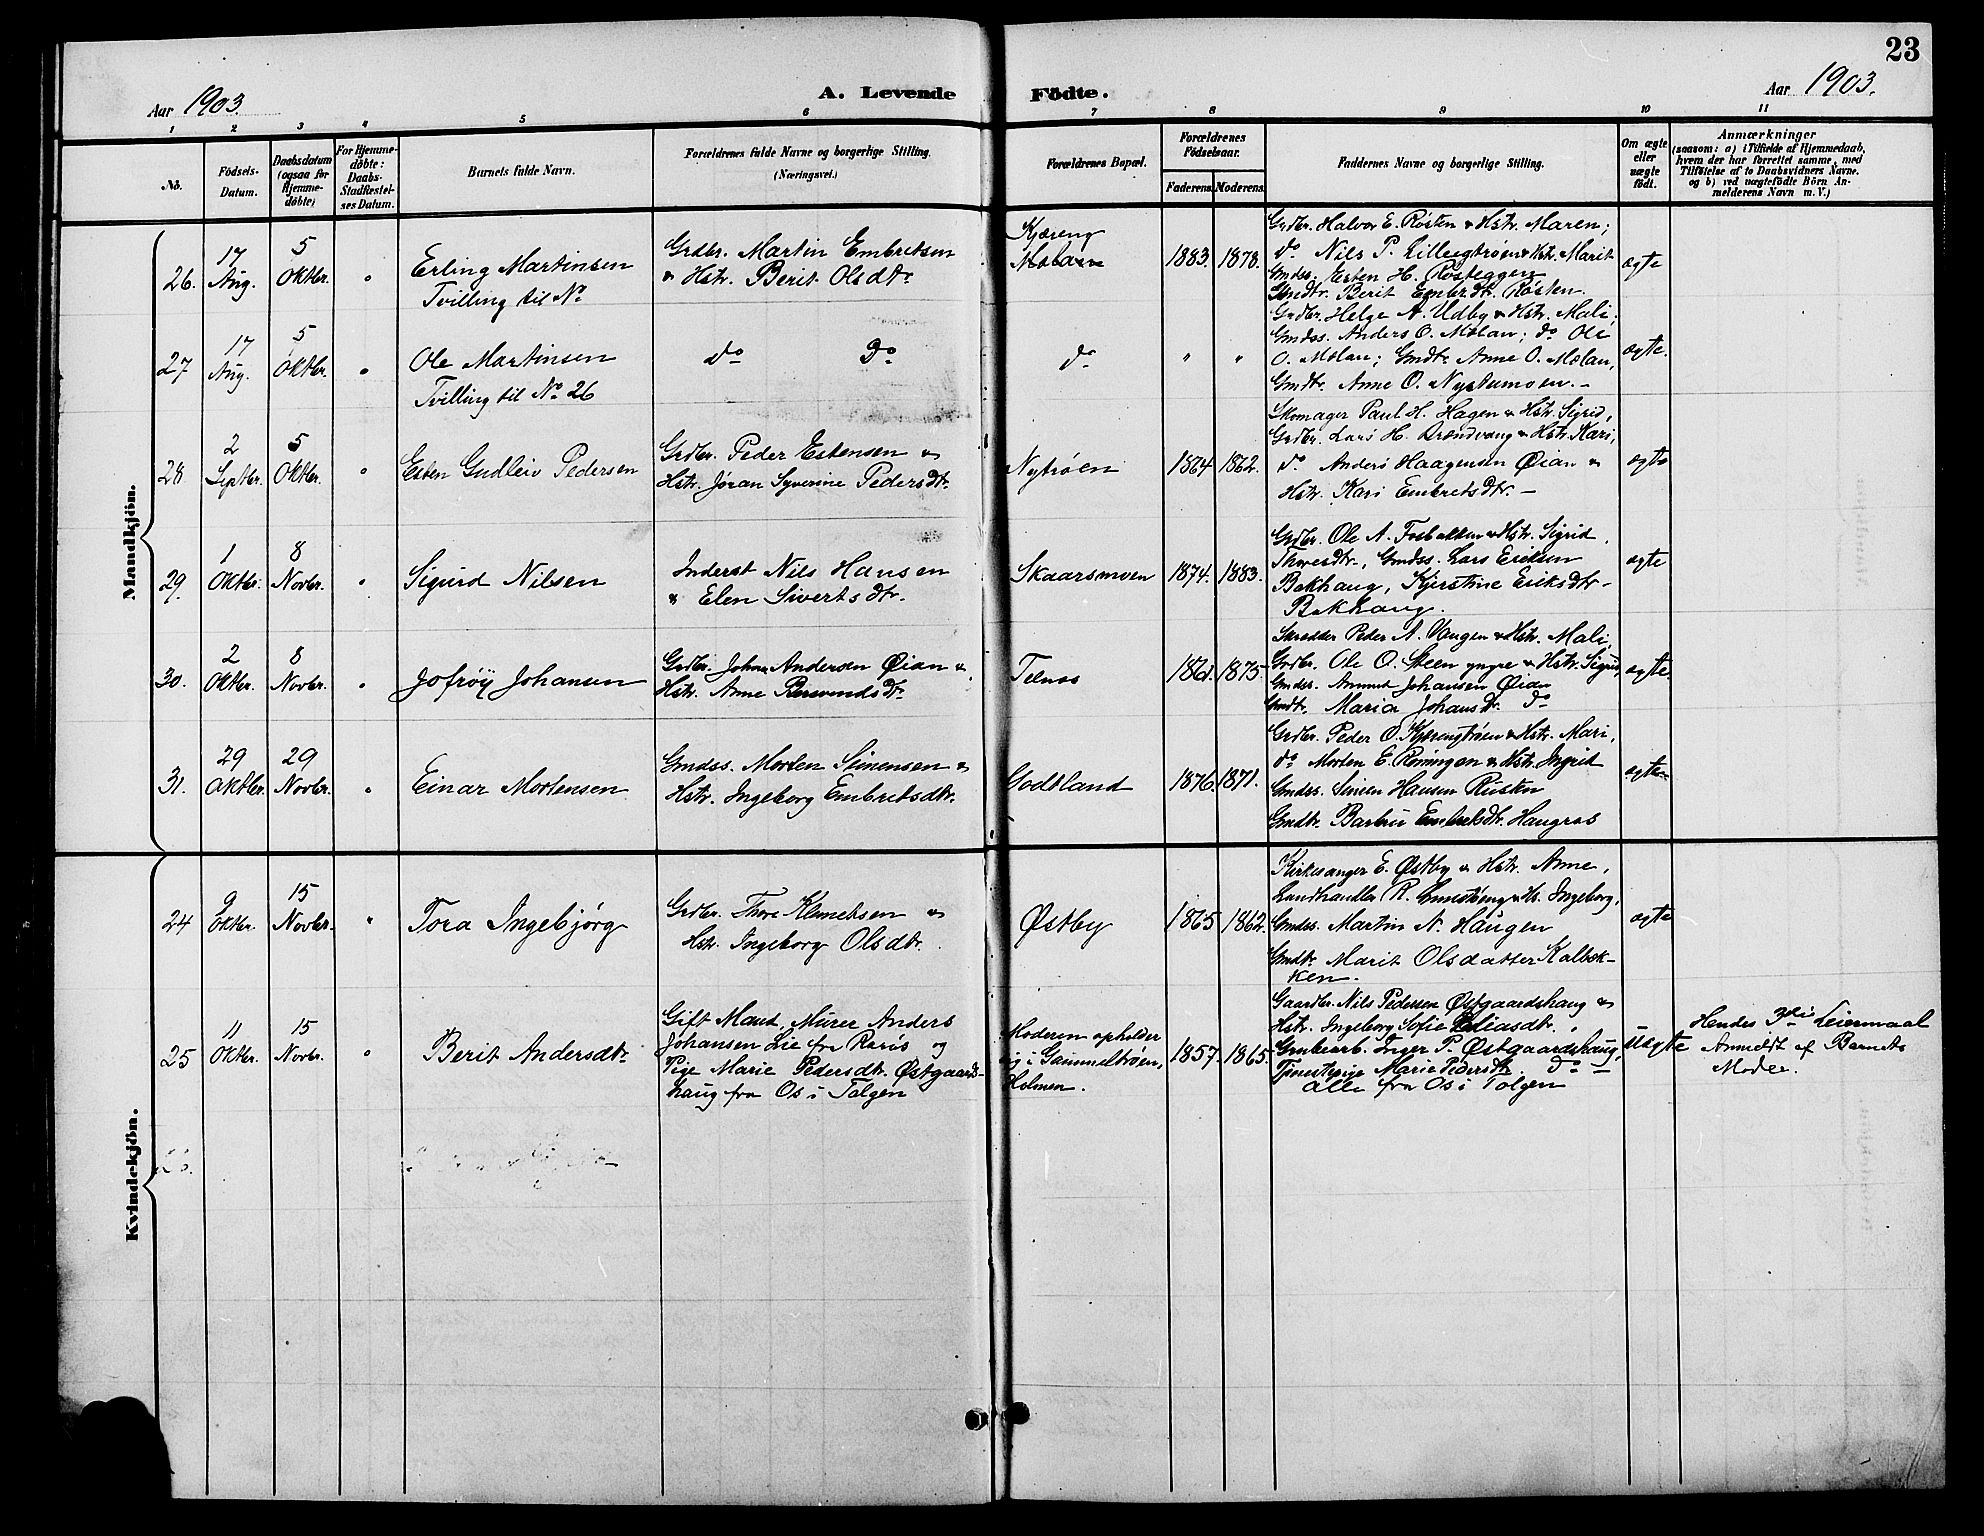 23
Aar 1903.
A. Levende Födte.
Aar 1903.
1 2 3 4 5 6 7 8 9 10 11
No.
Födsels-Datum.
Daabsdatum (ogsaa for Hjemmedöbte)
For Hjemmedöbte: Daabs-Stadfestelses Datum.
Barnets fulde Navn.
Forældrenes fulde Navne og borgerlige Stilling.
(Næringsvei.)
Forældrenes Bopæl.
Forældrenes Födselsaar.
Faderens. Moderens.
Faddernes Navne og borgerlige Stilling.
Om ægte eller uægte født.
Anmærkninger
(saasom: a) i Tilfælde af Hjemmedaab,
hvem der har forrettet samme, med
Tilføielse af to Daabsvidners Navne.
og b) ved uægtefödte Börn An-
melderens Navn m. V.)
Mandkjön.
26. 17 Aug. 5 Oktbr. "
Erling Martinsen
Tvilling til No
Grdbr. Martin Embretsen
& Hstr. Berit Olsdtr.
Kjæreng
Molan
1883. 1878.
Grdbr. Halvor E. Røsten & Hstr. Maren;
do Nils P. Lilleegtrøen & Hstr. Marit
Gmdss. Esten H. Røsteggen
Gmdtr. Berit Embr.dtr. Røsten.
ægte
27 17 Aug. 5 Oktbr. "
Ole Martinsen
Tvilling til No 26
do do
do
" "
Grdbr. Helge A. Udby & Hstr. Mali.
Gmdss. Anders O. Molan; do Ole
O. Molan; Gmdtr. Anne O. Molan,
Gmdtr. Anne O. Nystumoen.-
ægte.
28 2 Septbr. 5 Oktbr. "
Esten Gudleiv Pedersen
Grdbr. Peder Estensen &
Hstr. Jøran Syverine Pedersdtr.
Nytrøen
1864 1862.
Skomager Paul H. Hagen & Hstr. Sigrid,
Grdbr. Lars H. Brændvang & Hstr. Kari,
do Anders Haagensen Øian &
Hstr. Kari Embretsdtr.-
ægte
29 1 Oktbr. 8 Novbr. "
Sigurd Nilsen
Inderst Nils Hansen
& Elen Sivertsdtr.
Skaarsmoen
1874. 1883.
Grdbr. Ole A. Fosbakken & Hstr. Sigrid
Thoresdtr., Gmdss. Lars Eriksen
Bakhaug, Kjerstine Eriksdtr-
Bakhaug.
ægte
30. 2 Oktbr. 8 Novbr. "
Jofrøy Johansen
Grdbr. Johan Andersen Øian &
Hstr. Anne Bersvendsdtr.
Telnes
1861. 1875.
Skredder Peder A. Vangen & Hstr. Mali,
Grdbr. Ole O. Steen yngre & Hstr. Sigrid,
Gmdss. Ammut Johansen Øian
Gmdtr. Maria Johansdtr. do
ægte.
31. 29 Oktbr. 29 Novbr. "
Einar Mortensen
Gmdss. Morten Simensen &
Hstr. Ingeborg Embretsdtr.
Godtland
1876. 1871.
Grdbr. Peder O. Kjærengtrøen & Hstr. Mari,
do Morten E. Røningen & Hstr. Ingrid
Gmdss. Simen Hansen Rusten
Gmdtr. Barbru Embretsdtr. Haugros
ægte
Kvindekjön.
24 9 Oktbr. 15 Novbr. "
Tora Ingebjørg
Grdbr. Thore Klemetsen &
Hstr. Ingeborg Olsdtr.
Østby
1865 1862.
Kirkesanger E. Østby & Hstr. Anne,
Landhandler R. & Hs. Ingeborg,
Gmdss. Martin N. Haugen
Gmdtr. Marit Olsdatter Kalbæk-
ken.
ægte
25 11 Oktbr. 15 Novbr. "
Berit Andersdtr.
Gift Mand, Murer Anders
Johansen Lie fra Røros og
Pige Marie Pedersdtr. Østgaards-
haug fra Os i Tolgen
Moderen opholder
sig i Gammeltrøen,
Holmen.
1857. 1865.
Gaardbr. Nils Pedersen Østgaardshaug &
Hstr. Ingeborg Sofie Eliasdtr. ,
Grubearb. Inger P. Østgaardshaug,
Tjenestepige Marie Pedersdtr. do -
alle fra Os i Tolgen
uægte
Hendes 3die Leiermaal
Anmeldt af Barnets
Moder.
26.